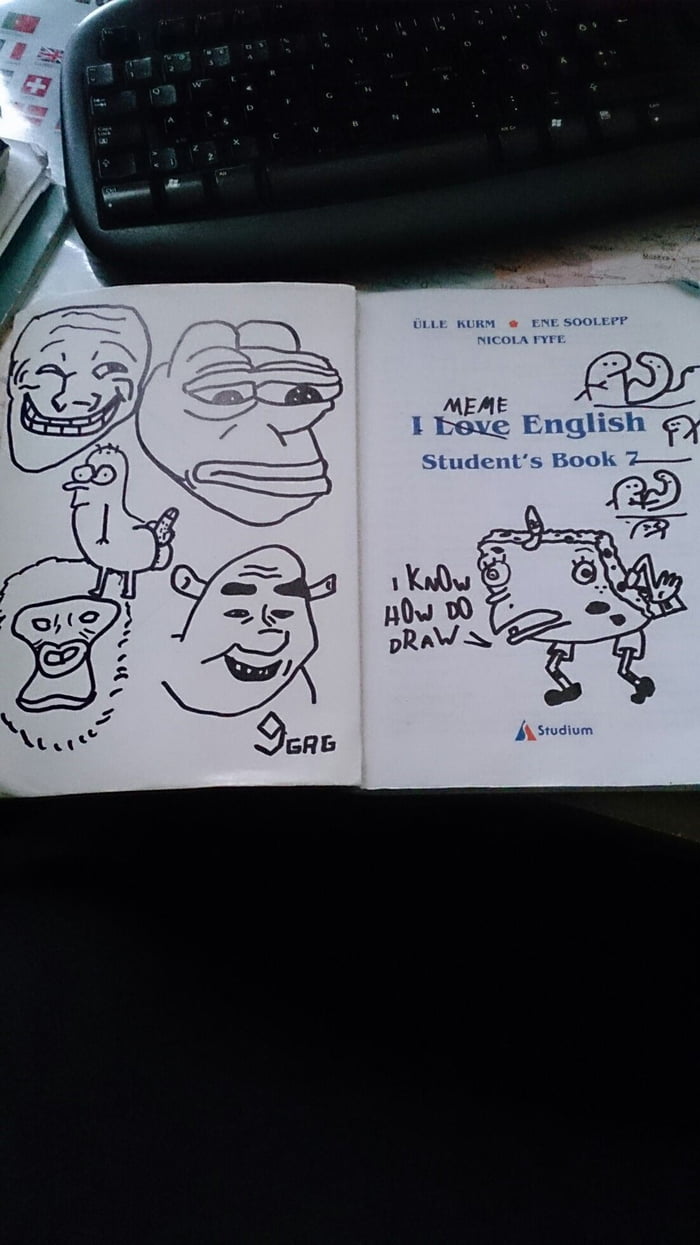 ÜLLE KURM ENE SOOLEPP
NICOLA FYFE
MEME
I Love English
Student's Book 7
I KNOW
HOW DO
DRAW
Studium
9GAG